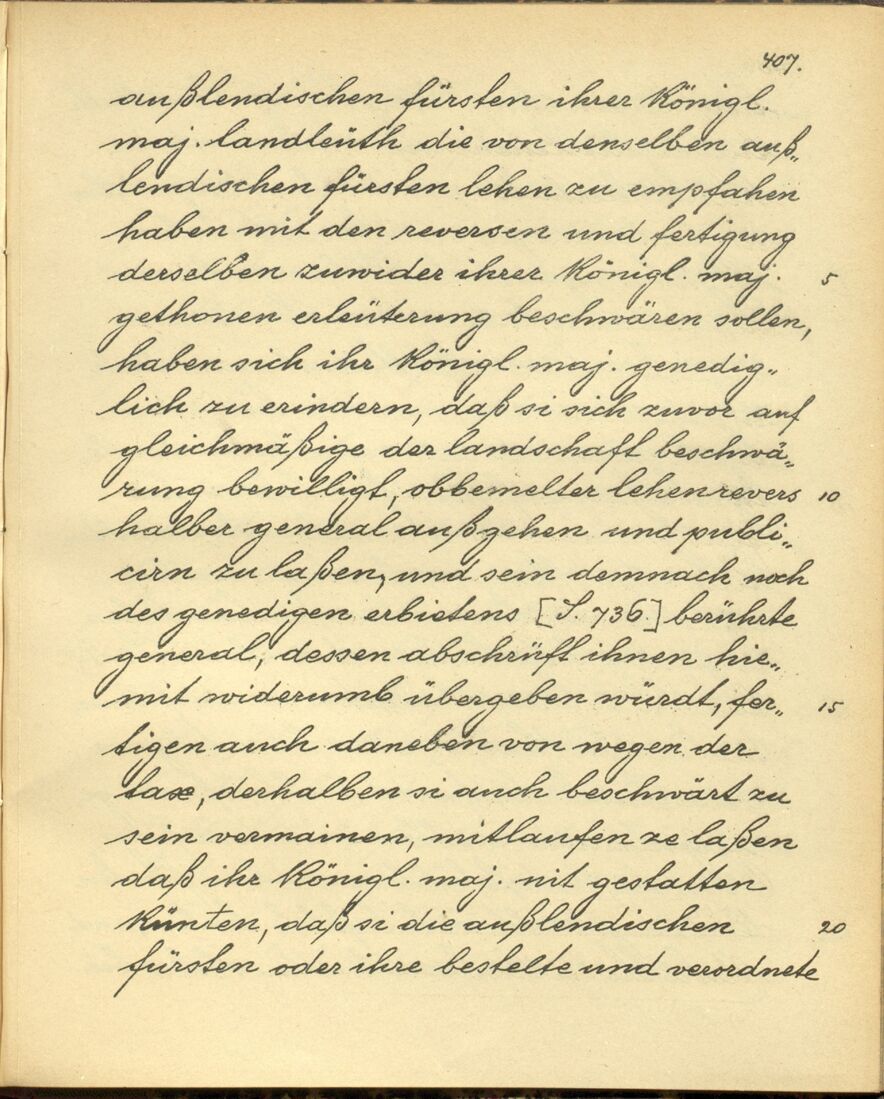 407.
außlendischen fürsten ihrer Königl.
maj. landleüth die von denselben auß„
lendischen fürsten lehen zu empfahen
haben mit den reversen und fertigung
derselben zuwider ihrer Königl. maj. 5
gethonen erleüterung beschwären sollen,
haben sich ihr Königl. maj. genedig„
lich zu erindern, daß si sich zuvor auf
gleichmäßige der landschaft beschwä„
rung bewilligt, obbemelter lehenrevers 10
halber general außgehen und publi„
cirn zu laßen, und sein demnach noch
des genedigen erbietens [S. 736.] berührte
general, dessen abschrüft ihnen hie„
mit widerumb übergeben würdt, fer„ 15
tigen auch daneben von wegen der
taxe, derhalben si auch beschwärt zu
sein vermainen, mitlaufen ze laßen
daß ihr Königl. maj. nit gestatten
künten, daß si die außlendischen 20
fürsten oder ihre bestelte und verordnete